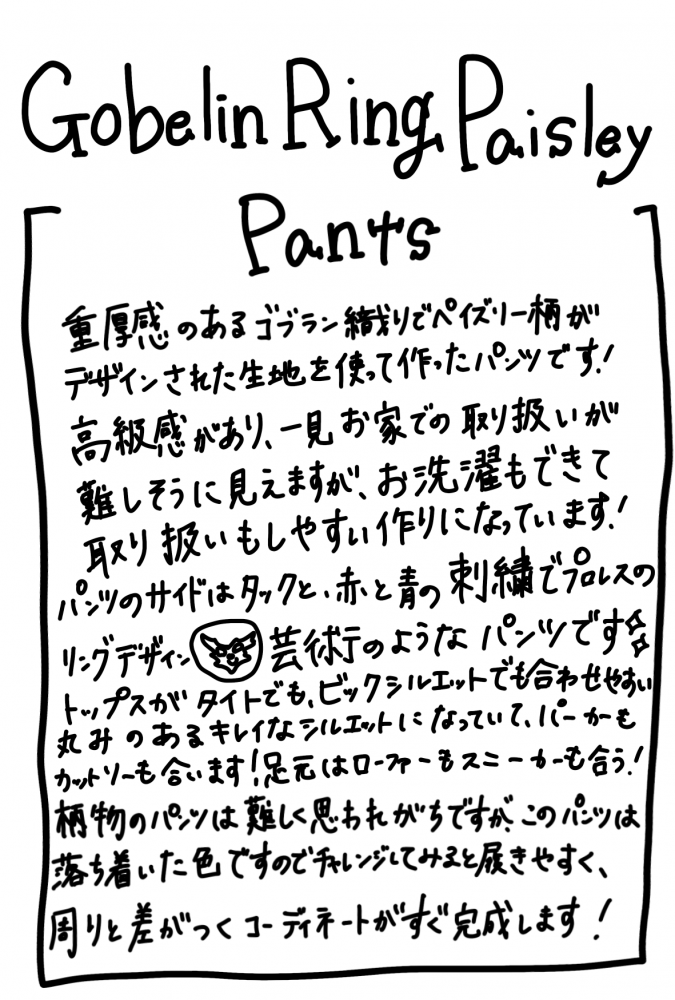 Gobelin Ring Paisley
Pants
重厚感のあるゴブラン織りでペイズリー柄が
デザインされた生地を使って作ったパンツです!
高級感があり、一見お家での取り扱いが
難しそうに見えますが、お洗濯もできて
取り扱いもしやすい作りになっています!
パンツのサイドはタックと、赤と青の刺繍でプロレスの
リングデザイン 芸術品のようなパンツです
トップスがタイトでも、ビックシルエットでも合わせやすい
丸みのあるキレイなシルエットになっていて、パーカーも
カットソーも合います!足元はローファーもスニーカーも合う!
柄物のパンツは難しく思われがちですが、このパンツは
落ち着いた色ですのでチャレンジしてみると履きやすく、
周りと差がつくコーディネートがすぐ完成します!